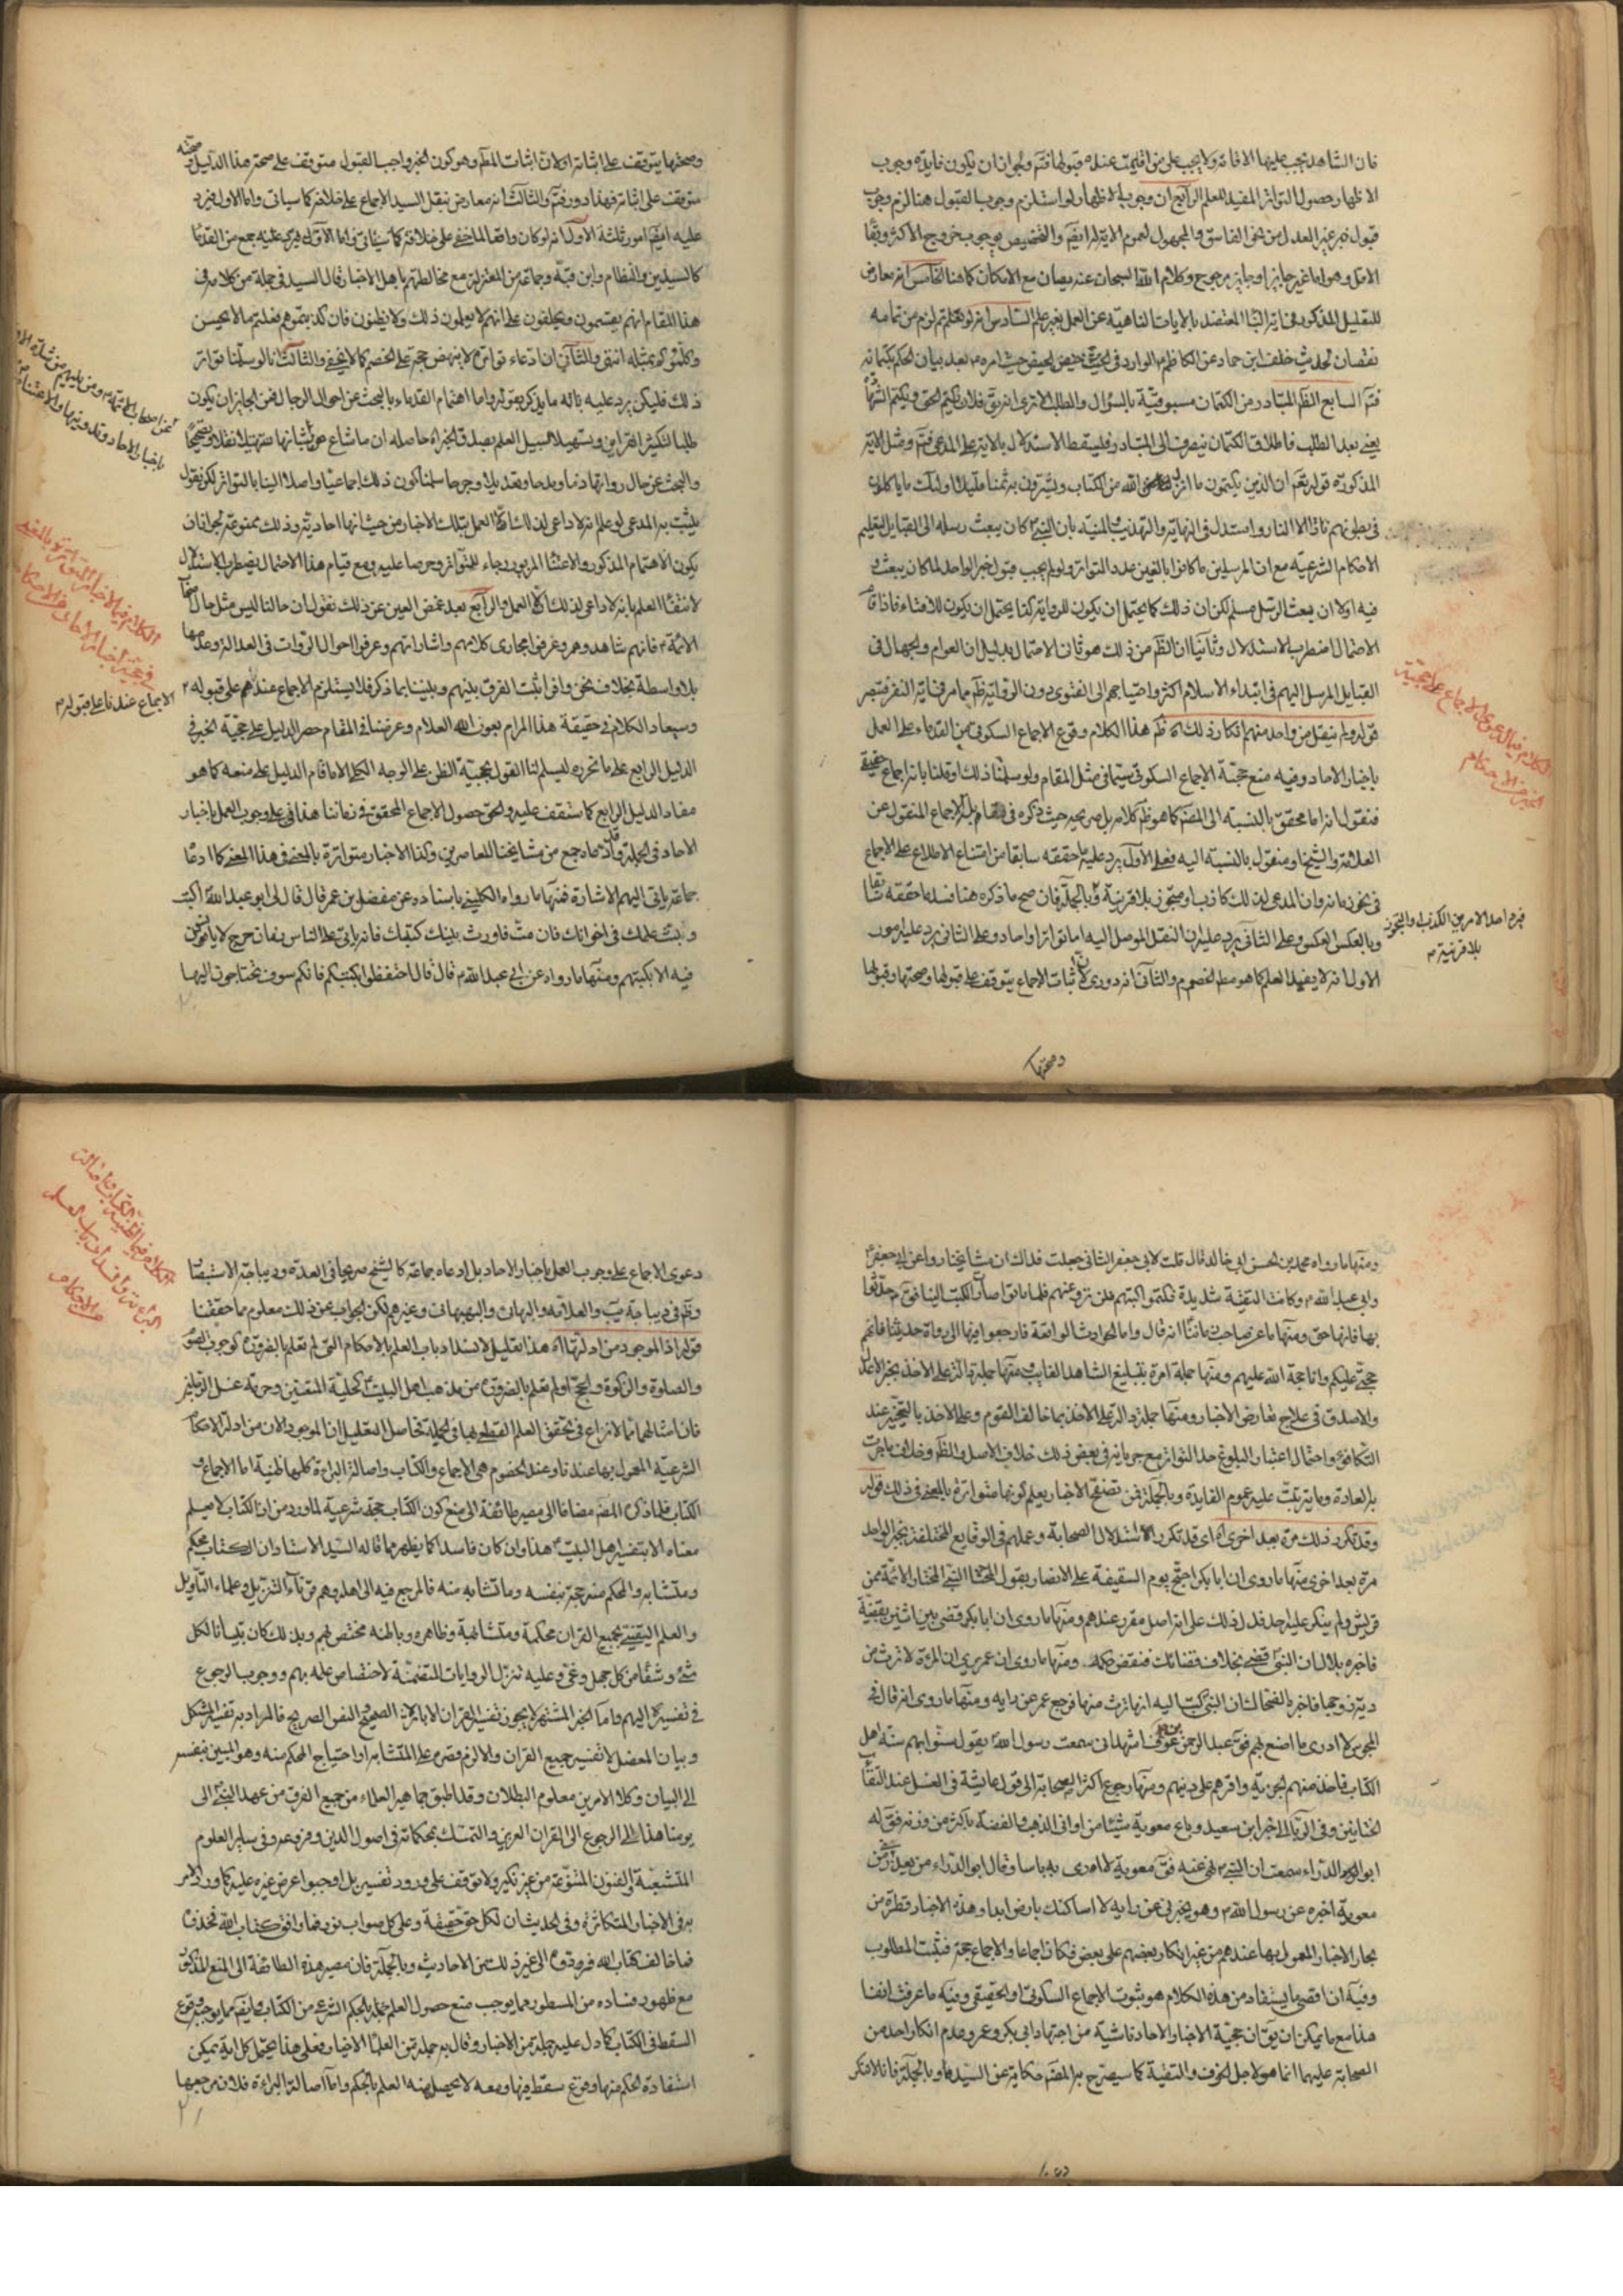 فان الشاهد يجب عليها الاقامة ولا يجب على من اقيمت عنده قبولها فتم ولجواز ان يكون فايدة وجوب
الاظهار حصول التواتر المفيد للعلم الرابع ان وجوب الاظهار لو استلزم وجوب القبول هنا لزم وجوب
قبول خبر غير العدل من نحو الفاسق والمجهول لعموم الاية لهما ايضا والتخصيص يوجب خروج الاكثر وبقاء
الاقل وهو اما غير جايز او جايز مرجوح وكلام الله سبحانه عنه يصان مع الامكان كما هنا الخامس انه معارض
نقصان لحديث خلف ابن حماد عن الكاظم الوارد في الحيض حيث امره بعد بيان الحكم بكتمانه
فتم السابع الظم المتبادر من الكتمان مسبوقية بالسؤال والطلب الا ترى انه يق فلان يكتم الحق ويكتم الشهادة
يعني بعد الطلب فاطلاق الكتمان ينصرف الى المتبادر فليسقط الاستدلال بالاية على المدعى فتم ومثل الاية
المذكورة قوله تعم ان الذين يكتمون ما انزل الله من الكتاب ويشترون به ثمنا قليلا اولئك ما ياكلون
في بطونهم نارا الا النار واستدل في النهاية والتهذيب والمنية بان النبي كان يبعث رسله الى القبايل لتعليم
الاحكام الشرعية مع ان المرسلين ما كانوا بالغين عدد التواتر ولو لم يجب قبول خبر الواحد لما كان يبعث و
فيه اولا ان بعث الرسل مسلم لكن ان ذلك كما يحتمل ان يكون للرواية كذا يحتمل ان يكون للافتاء فاذا قام
الاحتمال اضطرب الاستدلال وثانيا ان الظم من ذلك هو ثاني الاحتمال بدليل ان العوام والجهال في
القبايل المرسل اليهم في ابتداء الاسلام اكثر واحتياجهم الى الفتوى دون الرواية ظم مما مر في اية النفر فتبصر
قوله ولم ينقل من واحد منهم انكار ذلك اه ظم هذا الكلام وقوع الاجماع السكوتي من القدماء على العمل
باخبار الاحاد وفيه منع حجية الاجماع السكوتي سيما في مثل المقام ولو سلمنا ذلك او قلنا بانه اجماع حقيقة
فنقول انه اما محقق بالنسبة الى المصم كما هو ظم كلامه بل صريحه حيث ذكره في مقابلة الاجماع المنقول عن
العلامة والشيخ او منقول بالنسبة اليه فعلى الاول يرد عليه ما حققه سابقا من امتناع الاطلاع على الاجماع
في نحو زمانه وان المدعي لذلك كاذب او متجوز بلا قرينة وبالجملة فان صح ما ذكره هنا فسد ما حققه سابقا
وبالعكس العكس وعلى الثاني يرد عليه ان النقل الموصل اليه اما تواترا او احاد وعلى الثاني يرد عليه امور
الاول انه لا يفيد العلم كما هو مط الخصوم والثاني انه دوري لان اثبات الاجماع يتوقف على قبولها وصحتها وقبولها
فيرد احد الامرين الكذب والتجوز
بلا قرينة م
وصحتها
وصحتها يتوقف على اثباته اولا لان اثبات المطم وهو كون الخبر واجب القبول متوقف على صحة هذا الدليل وصحته
متوقف على اثباته فهذا دور فتم والثالث انه معارض بنقل السيد الاجماع على خلافه كما سياتي واما الاول فيرد
عليه ايضا امور ثلثة الاول انه لو كان واقعا لما خفي على خلافه كما سياتي واما الاول فيرد عليه جمع من القدماء
كالسيدين والنظام وابن قبة وجماعة من المعتزلة مع مخالطتهم باهل الاخبار قال السيد في جملة من كلامه في
هذا المقام انهم يقسمون ويحلفون على انهم لا يعلمون ذلك ولا يظنون فان كذبتموهم فعلتم ما لا يحسن
وكلموكم بمثله انتهى والثاني ان ادعاء تواتره لا ينهض حجة على الخصم كما لا يخفى والثالث انا لو سلمنا تواتر
ذلك فليكن يرد عليه باله ما يذكر بقوله واما اهتمام القدماء بالبحث عن احوال الرجال فمن الجايز ان يكون
طلبا لتكثير القراين وتسهيلا لسبيل العلم بصدق الخبر اه حاصله ان ما شاع من شانها ضبطا ونقلا وتصحيحا
والبحث عن حال رواتها ذما ومدحا وتعديلا وجرحا سلمنا كون ذلك اجماعيا واصلا الينا بالتواتر لكن نقول
يثبت به المدعى لو علم انه لا داعي لذلك الا العمل بتلك الاخبار من حيث انها احاديثه وذلك ممنوع لجواز ان
يكون الاهتمام المذكور والاعتناء المزبور رجاء للتواتر وحرصا عليه ومع قيام هذا الاحتمال يضطرب الاستدلال
لانتفاء العلم بانه لا داعي لذلك الا العمل والرابع بعد غمض العين عن ذلك نقول ان حالنا ليس مثل حال
الائمة م فانهم شاهدوهم وعرفوا مجاري كلامهم واشاراتهم وعرفوا احوال الروات في العدالة وعدمها
بلا واسطة بخلاف نحن واذا ثبت الفرق بينهم وبيننا بما ذكر فلا يستلزم الاجماع عندهم على قبوله م
الاجماع عندنا على قبوله م
وسيعاد الكلام في حقيقة هذا المرام بعون الله العلام وغرضنا في المقام حصر الدليل على حجية الخبر في
الدليل الرابع على ما نحرره ليسلم لنا القول بحجية الظن على الوجه الكلي الا ما قام الدليل على منعه كما هو
مفاد الدليل الرابع كما ستقف عليه والحق حصول الاجماع المحقق في زماننا هذا في على وجوب العمل باخبار
الاحاد في الجملة وقد ادعاه جمع من مشايخنا المعاصرين وكذا الاخبار متواترة بالمعنى في هذا المعنى كما ادعاه
جماعة ياتي اليهم الاشارة فمنها ما رواه الكليني باسناده عن مفضل بن عمر قال قال لي ابو عبد الله اكتب
وبث علمك في اخوانك فان مت فاورث بنيك كتبك فانه ياتي على الناس زمان حرج لا يانسون
فيه الا بكتبهم ومنها ما رواه عن ابي عبد الله م قال قال احتفظوا بكتبكم فانكم سوف تحتاجون اليها
ومنها ما رواه محمد بن الحسن ابي خالد قال قلت لابي جعفر الثاني جعلت فداك ان مشايخنا رووا عن ابي جعفر
وابي عبد الله م وكانت التقية شديدة فكتموا كتبهم فلم ترو عنهم فلما ماتوا صارت الكتب الينا فق حدثوا
بها فانها حق ومنها ما عن صاحب زماننا انه قال واما الحوادث الواقعة فارجعوا فيها الى رواة حديثنا فانهم
حجتي عليكم وانا حجة الله عليهم ومنها جملة امرة بتبليغ الشاهد الغايب ومنها جملة دالة على الاخذ بخبر الاعدل
والاصدق في علاج تعارض الاخبار ومنها جملة دالة على الاخذ بما خالف القوم وعلى الاخذ بالتخيير عند
التكافؤ واحتمال اعتبار البلوغ حد التواتر مع جريانه في بعض ذلك خلاف الاصل والظم وخلاف ما جرت
به العادة وما يترتب عليه عموم الفايدة وبالجملة فمن تصفح الاخبار يعلم كونها متواترة بالمعنى في ذلك قوله
وقد تكرر ذلك مرة بعد اخرى اه اي قد تكرر الاستدلال الصحابة وعملهم في الوقايع المختلفة بخبر الواحد
مرة بعد اخرى منها ما روى ان ابا بكر احتج يوم السقيفة على الانصار بقول النبي المختار الائمة من
قريش ولم ينكر عليه احد فدل ذلك على انه اصل مقرر عندهم ومنها ما روى ان ابا بكر قضى بين اثنين بقضية
فاخبره بلال ان النبي قضى بخلاف قضائك فنقض حكمه ومنها ما روى ان عمر يرى ان المرءة لا ترث من
دية زوجها فاخبره الضحاك ان النبي كتب اليه انها ترث منها فرجع عمر عن رايه ومنها ما روى انه قال في
المجوس لا ادري ما اصنع بهم فق عبد الرحمن بن عوف اشهد اني سمعت رسول الله يقول سنوا بهم سنة اهل
الكتاب فاخذ منهم الجزية واقرهم على دينهم ومنها رجوع اكثر الصحابة الى قول عايشة في الغسل عند التقاء
الختانين وفي الربا الى خبر ابن سعيد وباع معوية شيئا من اواني الذهب والفضة باكثر من وزنه فق له
ابو الدرداء سمعت ان النبي م نهى عنه فق معوية لا ارى به باسا وقال ابو الدرداء من يعذرني من
معوية اخبره عن رسول الله م وهو يخبرني عن رايه لا اساكنك بارض ابدا وهذه الاخبار قطرة من
بحار الاخبار المعمول بها عندهم من غير انكار بعضهم على بعض فكان اجماعا والاجماع حجة فثبت المطلوب
وفيه ان اقصى ما يستفاد من هذه الكلام هو ثبوت الاجماع السكوتي او الحقيقي وفيه ما عرفت انفا
هذا مع ما يمكن ان يق ان حجية الاخبار الاحاد ناشية من اجتهاد ابي بكر وعمر وعدم انكار احد من
الصحابة عليهما انما هو لاجل الخوف والتقية كما سيصرح به المصم حكاية عن السيد وبالجملة فانا لا ننكر
دعوى الاجماع على وجوب العمل باخبار الاحاد بل ادعاه جماعة كالشيخ صريحا في العدة وديباجة الاستبصار
وظم في ديباجة يب والعلامة والبهائي والبهبهاني وغيرهم لكن الجواب عن ذلك معلوم مما حققنا
قوله اذ الموجود من ادلتها اه هذا تعليل لانسداد باب العلم بالاحكام التي لم تعلم بالضرورة كوجوب الصوم
والصلوة والزكوة والحج او لم تعلم بالضرورة من مذهب اهل البيت كحلية المتعتين وحرمة غسل الرجلين
فان امثالهما مما لا نزاع في تحقق العلم القطعي بها في الجملة فحاصل التعليل ان الموجود الان من ادلة الاحكام
الشرعية المعمول بها عندنا وعند الخصوم هي الاجماع والكتاب واصالة البراءة كلها ظنية اما الاجماع و
الكتاب فلما ذكره المصم مضافا الى مصير طائفة الى منع كون الكتاب حجة شرعية لما ورد من ان الكتاب لا يعلم
معناه الا بتفسير اهل البيت هذا وان كان فاسدا كما يظهر مما قاله السيد الاستاد ان الكتاب محكم
ومتشابه والمحكم منه حجة بنفسه وما تشابه منه فالمرجع فيه الى اهله وهم قرناء التنزيل وعلماء التاويل
والعلم اليقيني بجميع القران محكمة ومتشابهه وظاهره وباطنه مختص بهم وبذلك كان تبيانا لكل
شئ وشفاء من كل جهل وغي وعليه تنزل الروايات المتضمنة لاختصاص علمه بهم ووجوب الرجوع
في تفسيره اليهم واما الخبر المشتهر لا يجوز تفسير القران الا بالاثر الصحيح والنص الصريح فالمراد به تفسير المشكل
وبيان المعضل لا تفسير جميع القران والا لزم قصره على المتشابه او احتياج المحكم منه وهو المبين بنفسه
الى البيان وكلا الامرين معلوم البطلان وقد اطبق جماهير العلماء من جميع الفرق من عهد النبي الى
يومنا هذا على الرجوع الى القران العزيز والتمسك بمحكماته في اصول الدين وفروعه وفي ساير العلوم
المتشعبة والفنون المتنوعة من غير نكير ولا توقف على ورود تفسير بل اوجبوا عرض غيره عليه كما ورد الامر
به في الاخبار المتكاثرة وفي الحديث ان لكل حق حقيقة وعلى كل صواب نورا فما وافق كتاب الله فخذوه
فما خالف كتاب الله فردوه الى غير ذلك من الاحاديث وبالجملة فان مصير هذه الطائفة الى المنع المذكور
مع ظهور فساده من المسطور مما يوجب منع حصول العلم جملة بالحكم الشرعي من الكتاب وايضا مما يوجبه وقوع
السقط في الكتاب كما دل عليه جملة من الاخبار وقال به جملة من العلماء الاخيار فعلى هذا يحتمل كل اية يمكن
استفادة الحكم منها وقوع سقط فيها ومعه لا يحصل منه العلم بالحكم واما اصالة البراءة فلان مرجعها